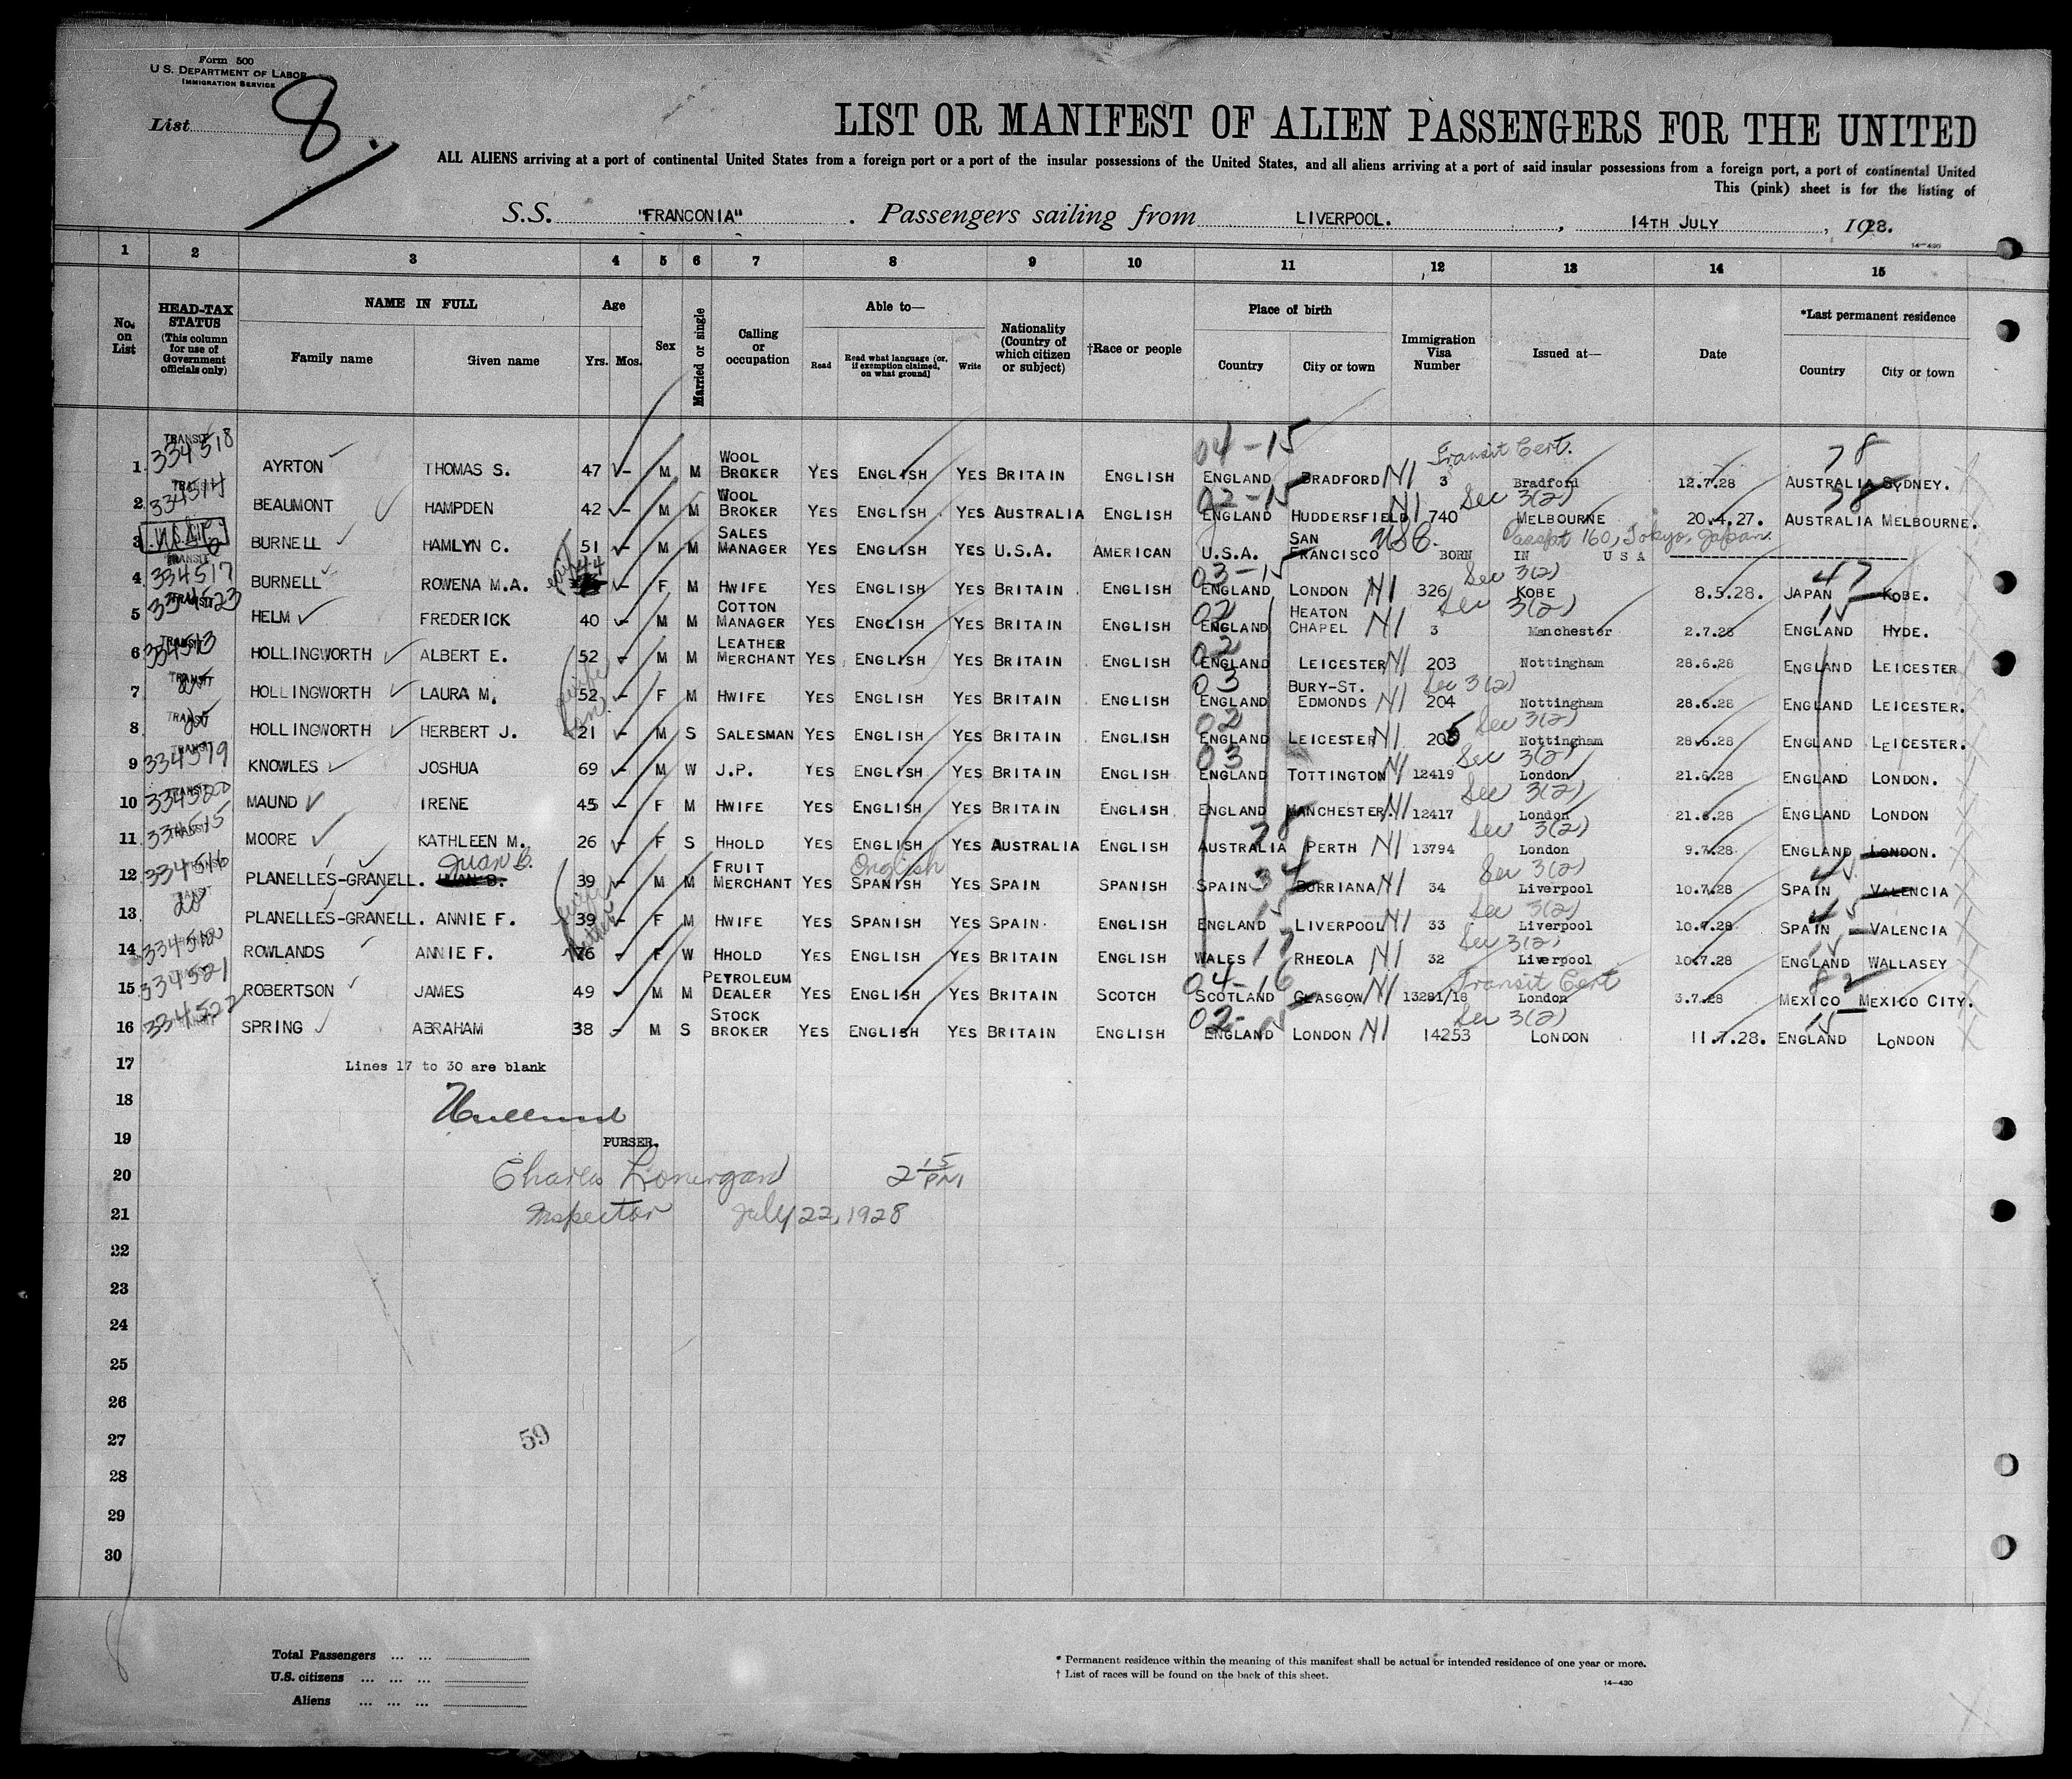 Form 500
U.S. DEPARTMENT OF LABOR
IMMIGRATION SERVICE
List 8.
LIST OR MANIFEST OF ALIEN PASSENGERS FOR THE UNITED
ALL ALIENS arriving at a port of continental United States from a foreign port or a port of the insular possessions of the United States, and all aliens arriving at a port of said insular possessions from a foreign port, a port of continental United
This (pink) sheet is for the listing of
S.S. "FRANCONIA". Passengers sailing from LIVERPOOL., 14TH JULY, 1928.
14-430
1 2 3 4 5 6 7 8 9 10 11 12 13 14 15
No. on List
HEAD-TAX STATUS (This column for use of Government officials only)
NAME IN FULL
Family name Given name
Age
Yrs. Mos.
Sex
Married or single
Calling or occupation
Able to—
Read Read what language [or, if exemption claimed, on what ground] Write
Nationality (Country of which citizen or subject)
†Race or people
Place of birth
Country City or town
Immigration Visa Number
Issued at—
Date
*Last permanent residence
Country City or town
1 TRANSIT 334518 AYRTON THOMAS S. 47 - M M WOOL BROKER YES ENGLISH YES BRITAIN ENGLISH 04-15 ENGLAND BRADFORD N1 3 Transit Cert. Bradford 12.7.28 78 AUSTRALIA SYDNEY.
2 TRANSIT 334514 BEAUMONT HAMPDEN 42 - M M WOOL BROKER YES ENGLISH YES AUSTRALIA ENGLISH 02-15 ENGLAND HUDDERSFIELD N1 740 Sec 3(2) MELBOURNE 20.4.27. 78 AUSTRALIA MELBOURNE.
3 BURNELL HAMLYN C. 51 - M M SALES MANAGER YES ENGLISH YES U.S.A. AMERICAN U.S.A. SAN FRANCISCO USC. Passpt 160, Tokyo, Japan. BORN IN USA
4 TRANSIT 334517 BURNELL ROWENA M.A. wife 44 - F M HWIFE YES ENGLISH YES BRITAIN ENGLISH 03-15 ENGLAND LONDON N1 326 Sec 3(2) KOBE 8.5.28. 47 JAPAN KOBE.
5 TRANSIT 334523 HELM FREDERICK 40 - M M COTTON MANAGER YES ENGLISH YES BRITAIN ENGLISH 02 ENGLAND HEATON CHAPEL N1 3 Sec 3(2) Manchester 2.7.28 15 ENGLAND HYDE.
6 TRANSIT 334513 HOLLINGWORTH ALBERT E. 52 - M M LEATHER MERCHANT YES ENGLISH YES BRITAIN ENGLISH 02 ENGLAND LEICESTER N1 203 Nottingham 28.6.28 ENGLAND LEICESTER
7 TRANSIT do HOLLINGWORTH LAURA M. wife 52 - F M HWIFE YES ENGLISH YES BRITAIN ENGLISH 03 ENGLAND BURY-ST. EDMONDS N1 204 Sec 3(2) Nottingham 28.6.28 ENGLAND LEICESTER.
8 TRANSIT do HOLLINGWORTH HERBERT J. son 21 - M S SALESMAN YES ENGLISH YES BRITAIN ENGLISH 02 ENGLAND LEICESTER N1 205 Sec 3(2) Nottingham 28.6.28 ENGLAND LEICESTER.
9 TRANSIT 334519 KNOWLES JOSHUA 69 - M W J.P. YES ENGLISH YES BRITAIN ENGLISH 03 ENGLAND TOTTINGTON N1 12419 Sec 3(2) London 21.6.28 ENGLAND LONDON.
10 TRANSIT 334520 MAUND IRENE 45 - F M HWIFE YES ENGLISH YES BRITAIN ENGLISH ENGLAND MANCHESTER. N1 12417 Sec 3(2) London 21.6.28 ENGLAND LONDON
11 TRANSIT 334515 MOORE KATHLEEN M. 26 - F S HHOLD YES ENGLISH YES AUSTRALIA ENGLISH 78 AUSTRALIA PERTH N1 13794 Sec 3(2) London 9.7.28 ENGLAND LONDON.
12 TRANSIT 334516 PLANELLES-GRANELL. Juan B. 39 - M M FRUIT MERCHANT YES English SPANISH YES SPAIN SPANISH SPAIN 34 BURRIANA N1 34 Sec 3(2) Liverpool 10.7.28 SPAIN VALENCIA
13 TRANSIT do PLANELLES-GRANELL. ANNIE F. wife 39 - F M HWIFE YES SPANISH YES SPAIN. ENGLISH ENGLAND 15 LIVERPOOL N1 33 Sec 3(2) Liverpool 10.7.28 SPAIN VALENCIA
14 334512 ROWLANDS ANNIE F. Mother 76 - F W HHOLD YES ENGLISH YES BRITAIN ENGLISH WALES 17 RHEOLA N1 32 Sec 3(2) Liverpool 10.7.28 15 ENGLAND WALLASEY
15 334521 ROBERTSON JAMES 49 M M PETROLEUM DEALER YES ENGLISH YES BRITAIN SCOTCH 04-16 SCOTLAND GLASGOW N1 13281/18 Transit Cert London 3.7.28 82 MEXICO MEXICO CITY.
16 334522 SPRING ABRAHAM 38 - M S STOCK BROKER YES ENGLISH YES BRITAIN ENGLISH 02-15 ENGLAND LONDON N1 14253 Sec 3(2) LONDON 11.7.28. 15 ENGLAND LONDON
17 Lines 17 to 30 are blank
18
19 PURSER.
20 Charles Lonergan 2 15 PM
21 Inspector July 22, 1928
22
23
24
25
26
27 59
28
29
30
Total Passengers ... ...
U.S. citizens ... ... ...
Aliens ... ... ...
* Permanent residence within the meaning of this manifest shall be actual or intended residence of one year or more.
† List of races will be found on the back of this sheet.
14-430